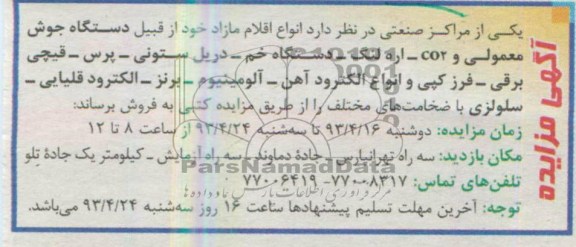 آگهی مزایده
یکی از مراکز صنعتی در نظر دارد انواع اقلام مازاد خود از قبیل دستگاه جوش
معمولی و CO۲ ــ اره لنگ ــ دستگاه خم ــ دریل ستونی ــ پرس ــ قیچی
برقی ــ فرز کپی و انواع الکترود آهن ــ آلومینیوم ــ برنز ــ الکترود قلیایی ــ
سلولزی با ضخامت‌های مختلف را از طریق مزایده کتبی به فروش برساند:
زمان مزایده: دوشنبه ۹۳/۴/۱۶ تا سه‌شنبه ۹۳/۴/۲۴ از ساعت ۸ تا ۱۲
مکان بازدید: سه راه تهرانپارس ــ جادهٔ دماوند ــ سه راه آزمایش ــ کیلومتر یک جادهٔ تلو
ParsNamadData
تلفن‌های تماس: ۷۷۰۰۸۳۱۷ ــ ۷۷۰۰۶۴۱۹
توجه: آخرین مهلت تسلیم پیشنهادها ساعت ۱۶ روز سه‌شنبه ۹۳/۴/۲۴ می‌باشد.